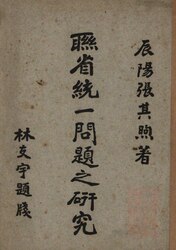 辰陽張其煦著
聯省統一問題之研究
林支宇題牋